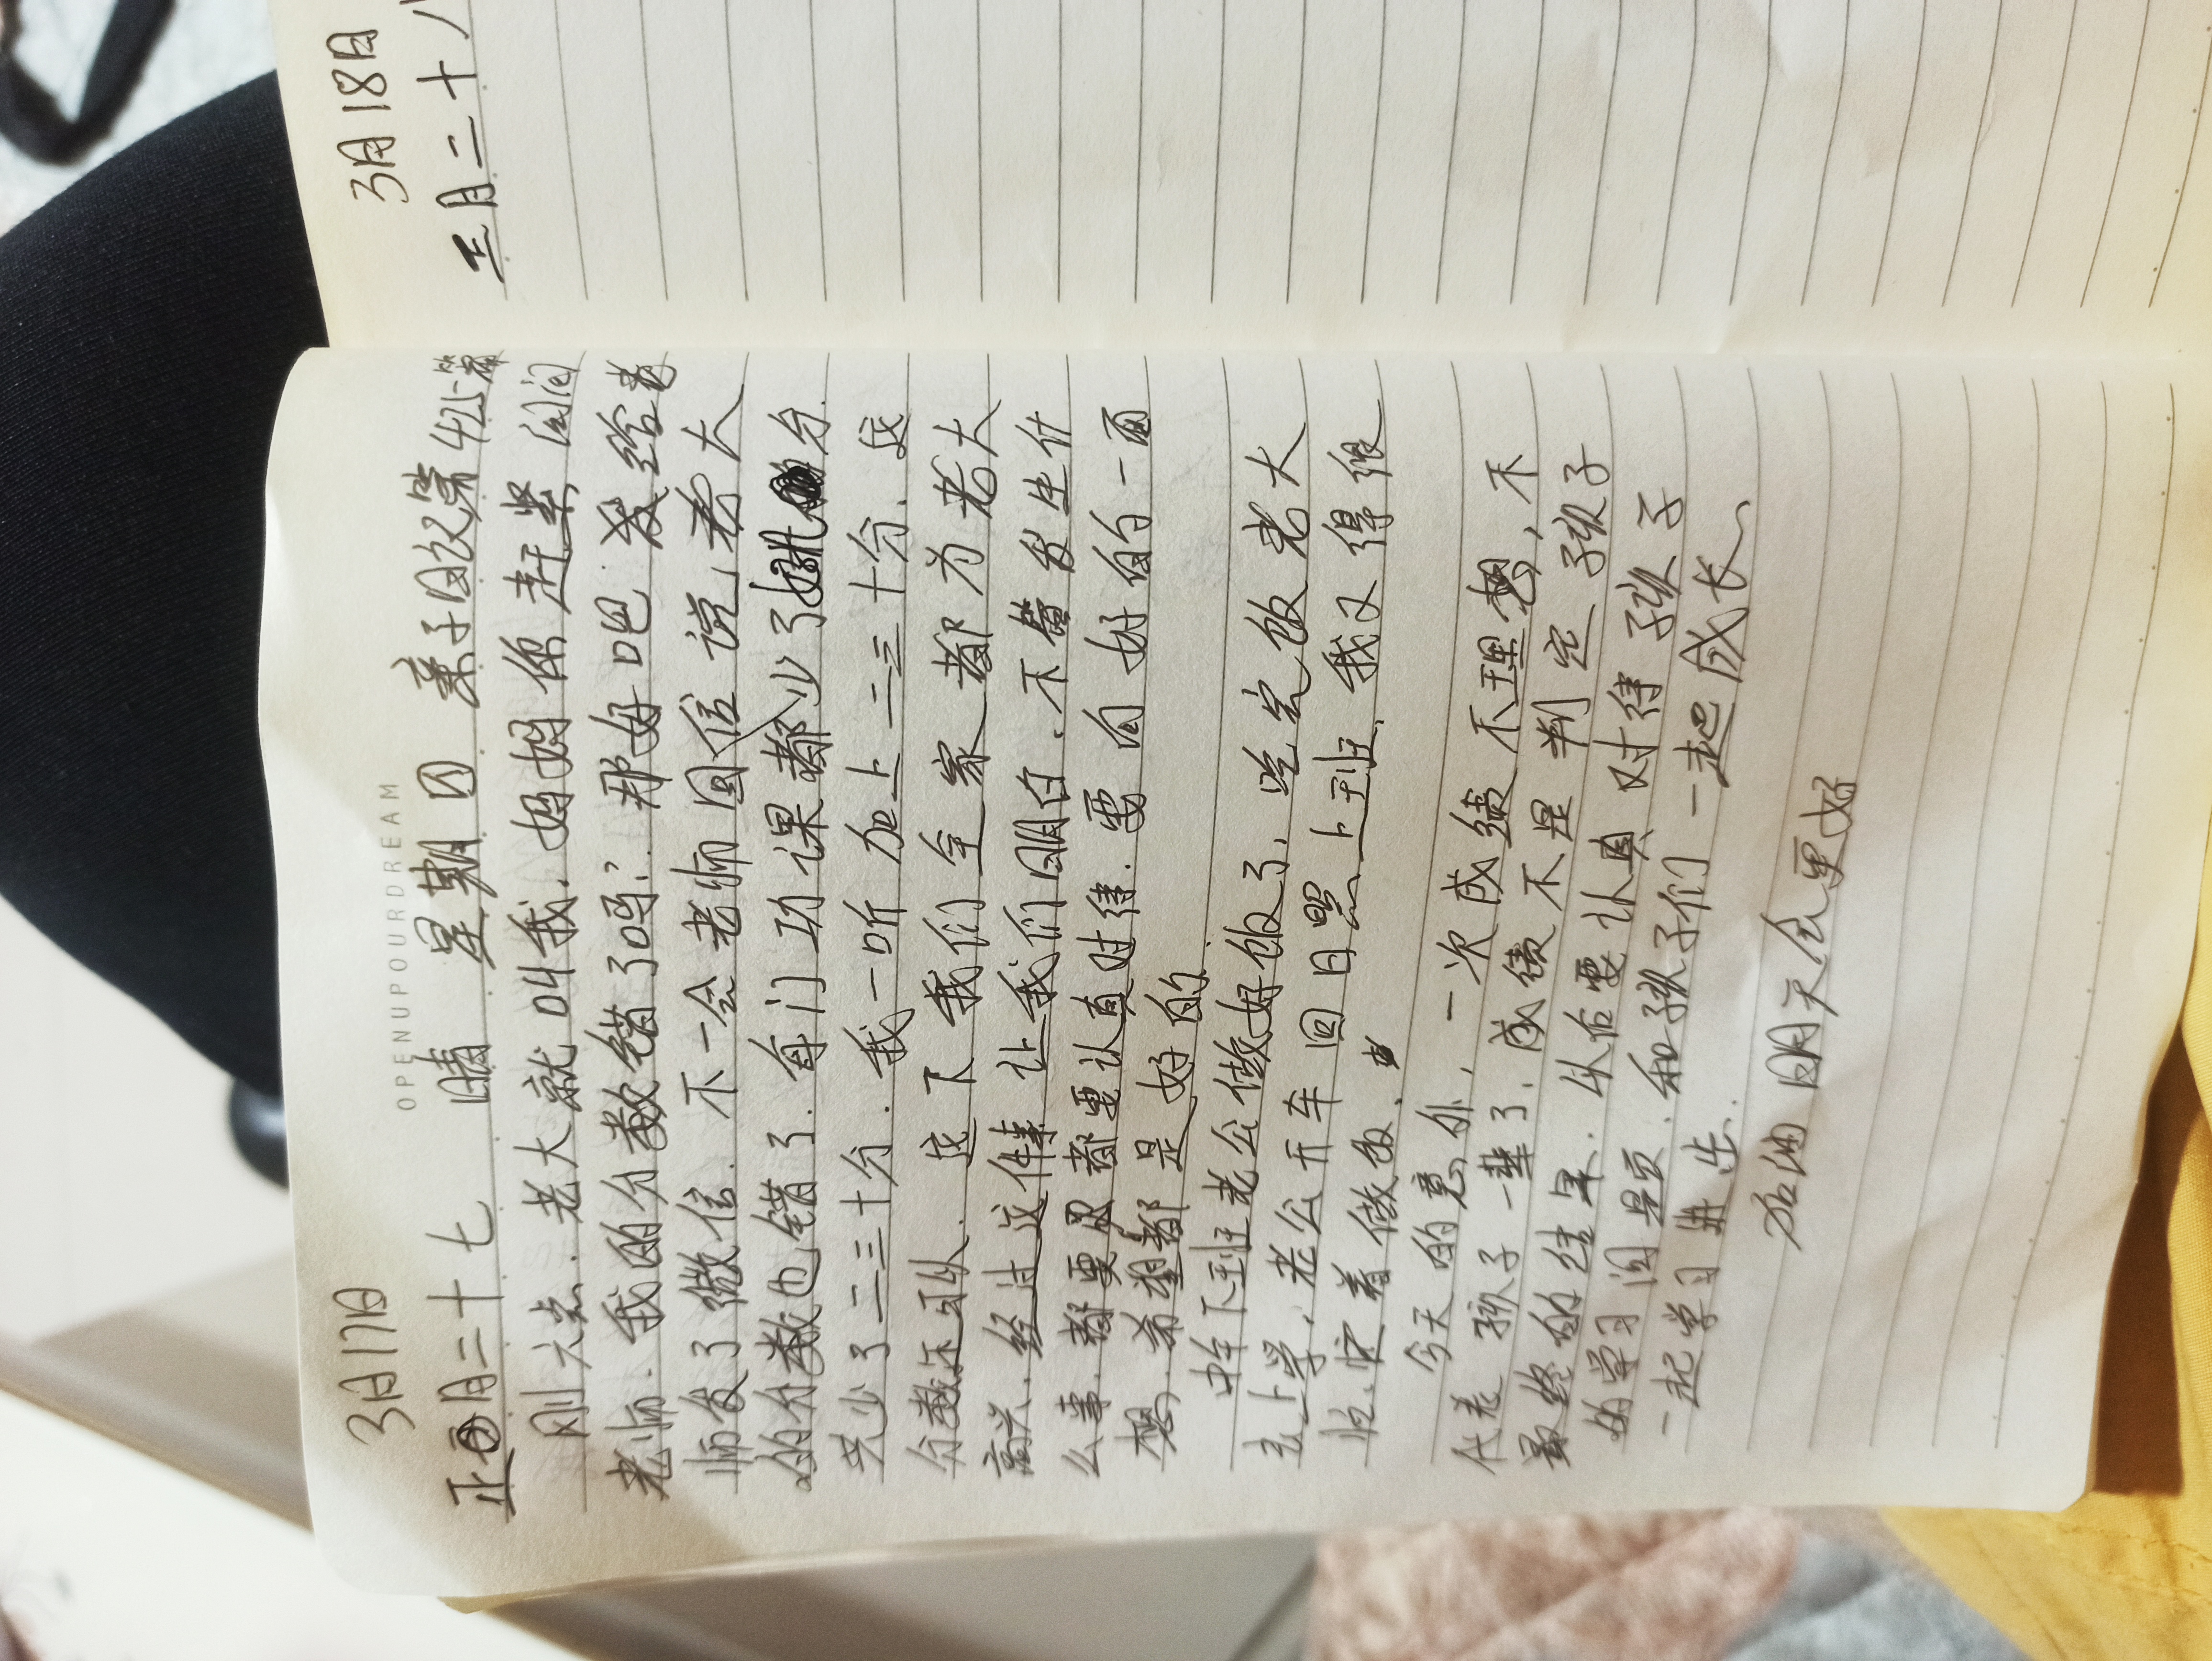 OPENUPYOURDREAM
3月17日
正月二十七 晴 星期四 亲子日记第425篇
刚六点.老大就叫我.妈妈你赶紧问问
老师.我的分数错了吗?那好吧 发给老
师发了微信.不一会老师回信说,老大
的分数也错了.每门功课都少了好几分.
共少了二三十分.我一听加上二三十分.这
分数还可以.这下我们全家都为老大
高兴.经过这件事让我们明白.不管发生什
么事.都要认真对待.要向好的一面
想,希望都是好的.
中午下班老公做好饭了,吃完饭老大
去上学,老公开车回日照上班.我又得很
忙.忙着做饭.
今天的意外,一次成绩不理想,不
代表孩子一辈子.成绩不是判定孩子
最终的结果.从后要认真对待孩子
的学习问题.和孩子们一起成长
一起学习进步.
加油明天会更好
3月18日
正月二十八